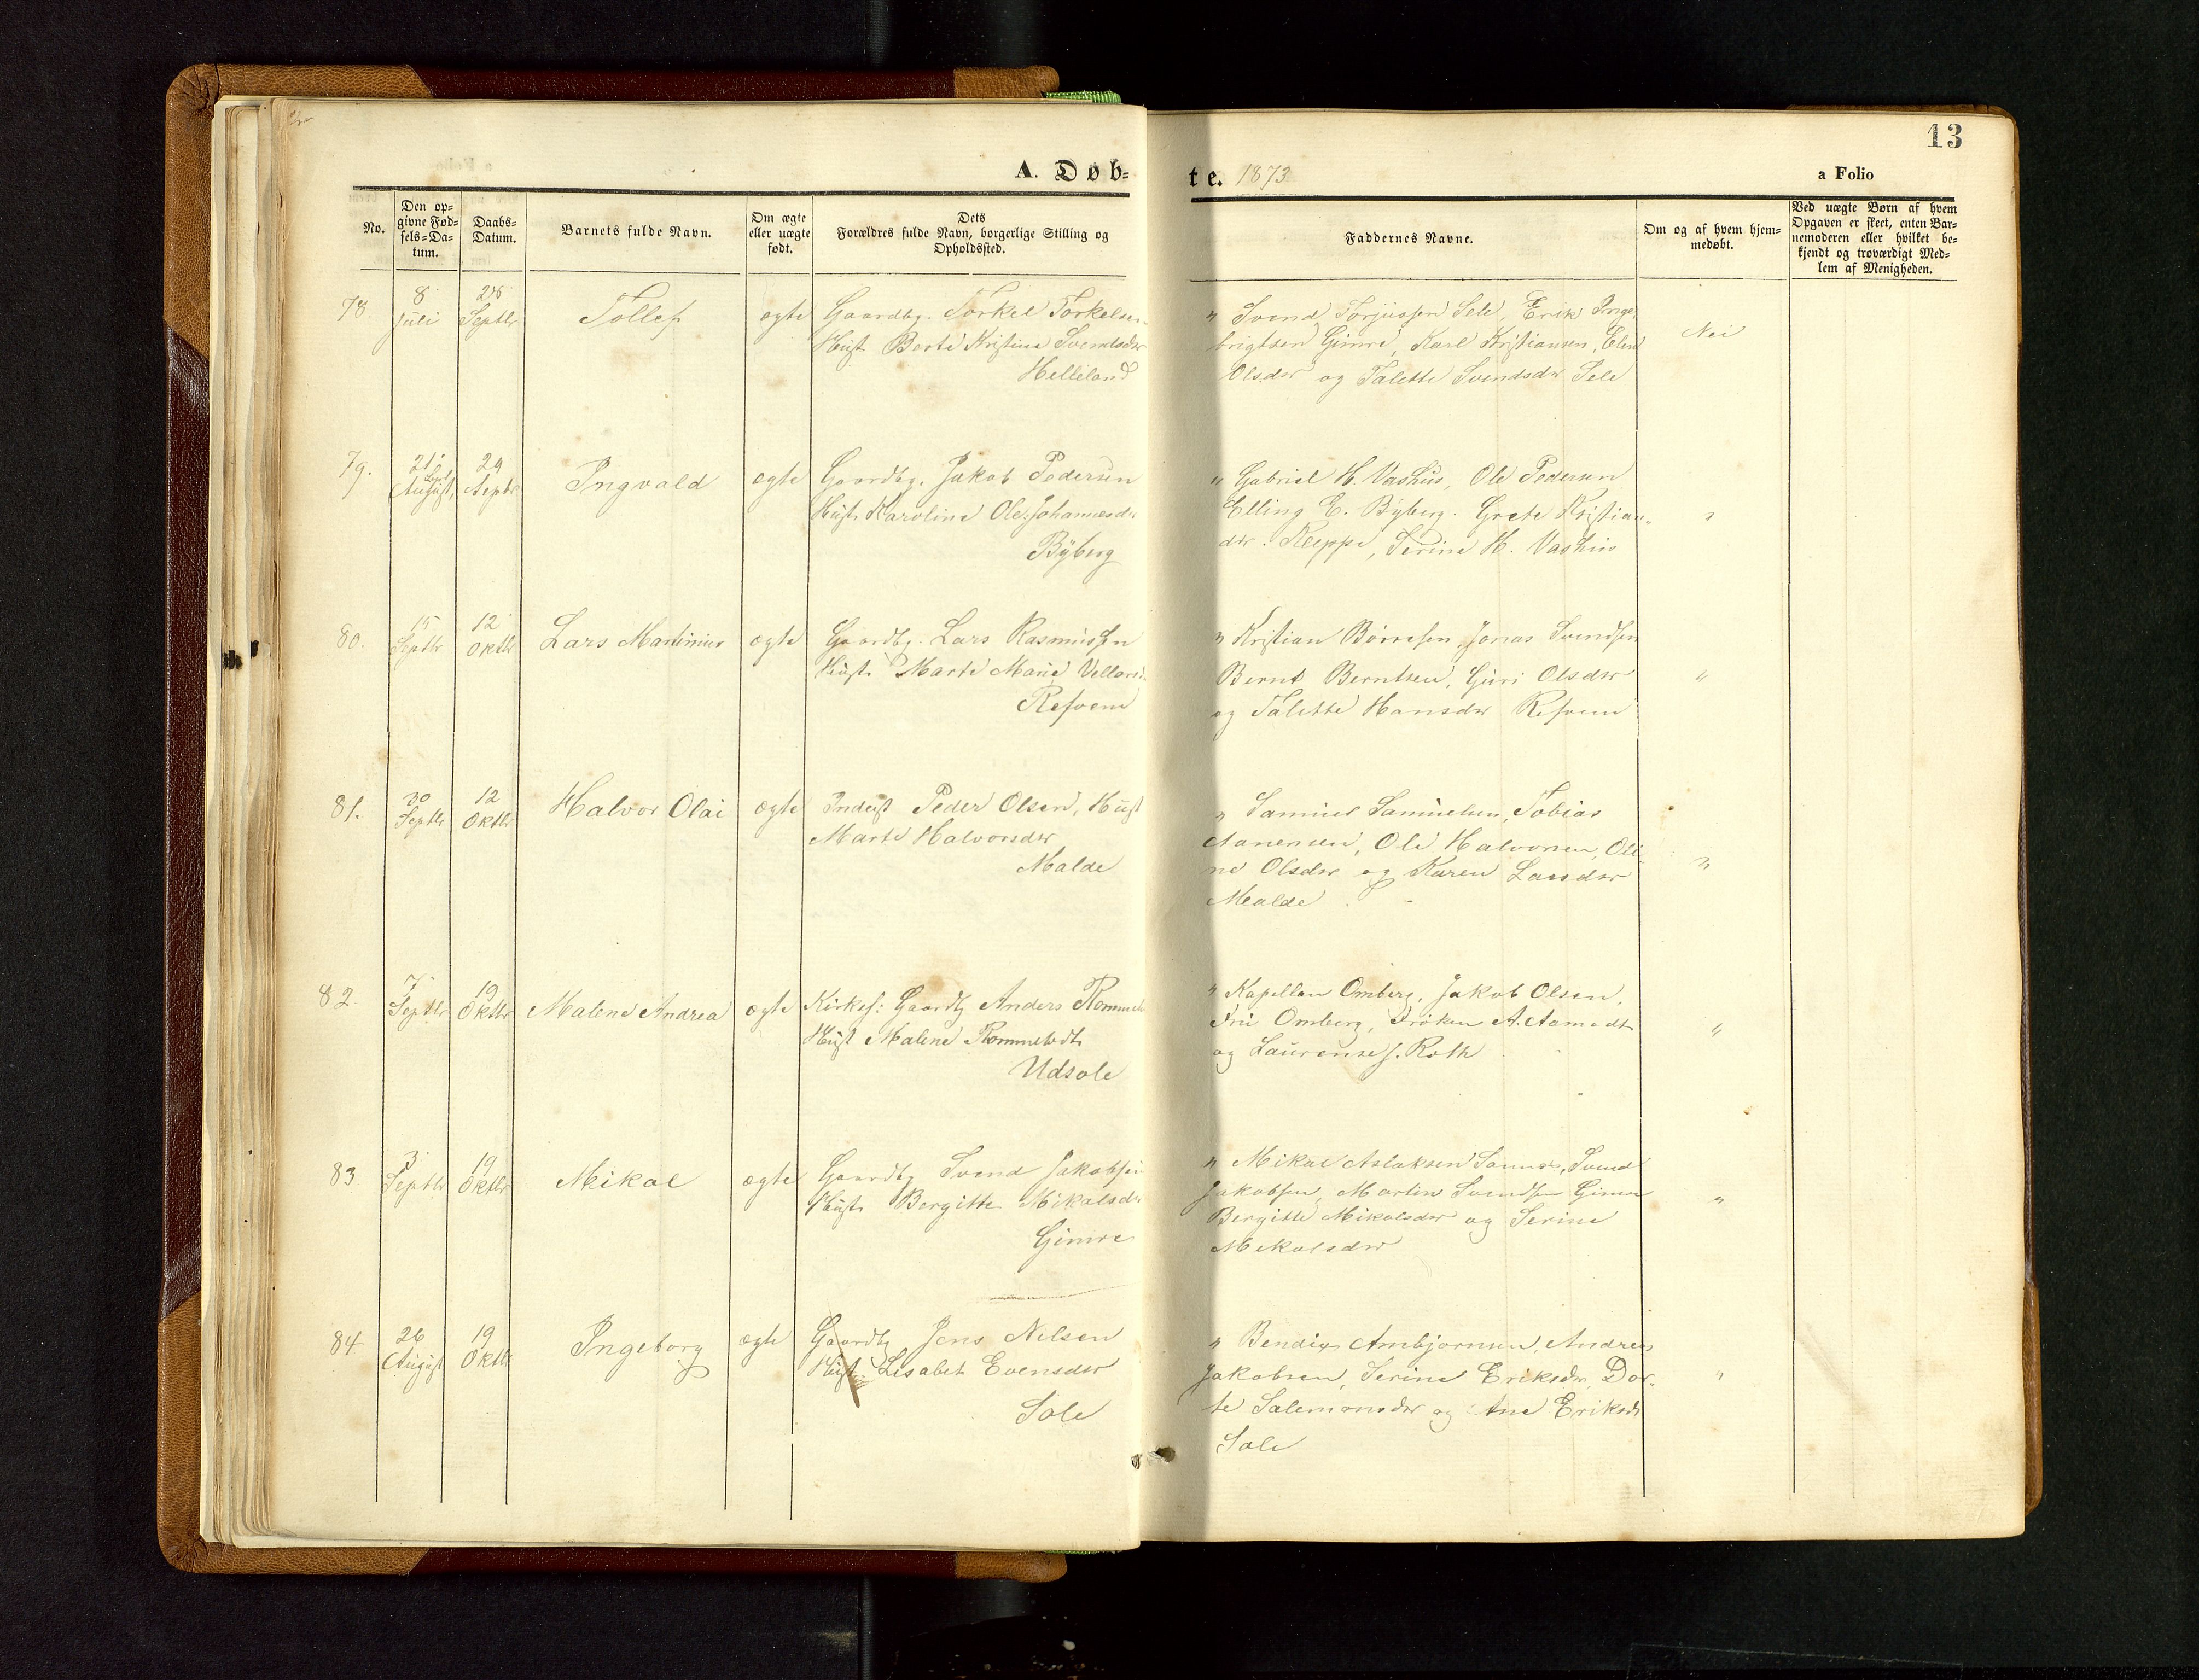 13
A. Døb-
te. 1873
a Folio
No.
Den op-
givne Fød-
sels-Da-
tum.
Daabs-
Datum.
Barnets fulde Navn.
Om ægte
eller uægte
født.
Dets
Forældres fulde Navn, borgerlige Stilling og
Opholdssted.
Faddernes Navne.
Om og af hvem hjem-
medøbt.
Ved uægte Børn af hvem
Opgaven er skeet, enten Bar-
nemoderen eller hvilket be-
kjendt og troværdigt Med-
lem af Menigheden.
78
8
Juli
28
Septbr
Tollef
ægte
Gaardbg. Torkel Torkelsen
Hust. Berte Kristine Svendsdtr
Helleland
" Svend Torjussen Sele, Erik Inge-
brigtsen Gimre, Karl Kristiansen, Elen
Olsdtr og Talette Svendsdtr Sele
Nei
79.
21
August
29
Septbr
Ingvald
ægte
Gaardbg. Jakob Pedersen
Hust. Karoline Ole. Johannesdtr
Byberg
" Gabriel H. Vashus, Ole Pedersen
Elling E. Byberg. Grete Kristian-
dtr. Kleppe, Serine H. Vashus
"
80.
15
Septbr
12
Oktbr
Lars Martinius
ægte
Gaardbg. Lars Rasmussen
Hust. Marte Marie
Refvem
" Kristian Børresen, Jonas Svendsen
Bernt Berntsen, Guri Olsdtr
og Talette Hansdtr Refvem
"
81.
30
Septbr
12
Oktbr
Halvor Olai
ægte
Inderst Peder Olsen, Hust
Marte Halvorsdtr
Malde
" Samuel Samuelsen, Tobias
Aanensen, Ole Halvorsen, Oli-
ne Olsdtr og Karen Larsdtr
Malde
"
82.
7
Septbr
19
Oktbr
Malene Andrea
ægte
Kirkes: Gaardbg Anders
Hust Malene Rommetvedt
Udsole
" Kapellan Omberg, Jakob Olsen,
Fru Omberg, Frøken A. Aamodt
og Laurense J. Roth
"
83
3
Septbr
19
Oktbr
Mikal
ægte
Gaardbg Svend Jakobsen
Hust. Bergitte Mikalsdtr
Gimre
" Mikal Aslaksen Sømme, Svend
Jakobsen, Martin Svendsen Gimre
Bergitte Mikalsdtr og Serine
Mikalsdtr
"
84
26
August
19
Oktbr
Ingeborg
ægte
Gaardbg Jens Nilsen
Hust. Lisabet Evensdtr
Sole
" Bendix Ambjørnsen, Andreas
Jakobsen, Serine Eriksdtr, Dor-
te Salemonsdtr og Ane Eriksdtr
Sole
"